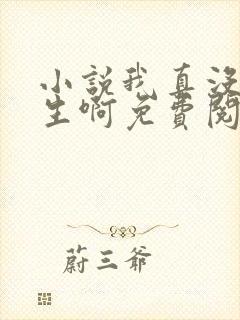 小說我真沒
生啊免費閱
蔚三爺